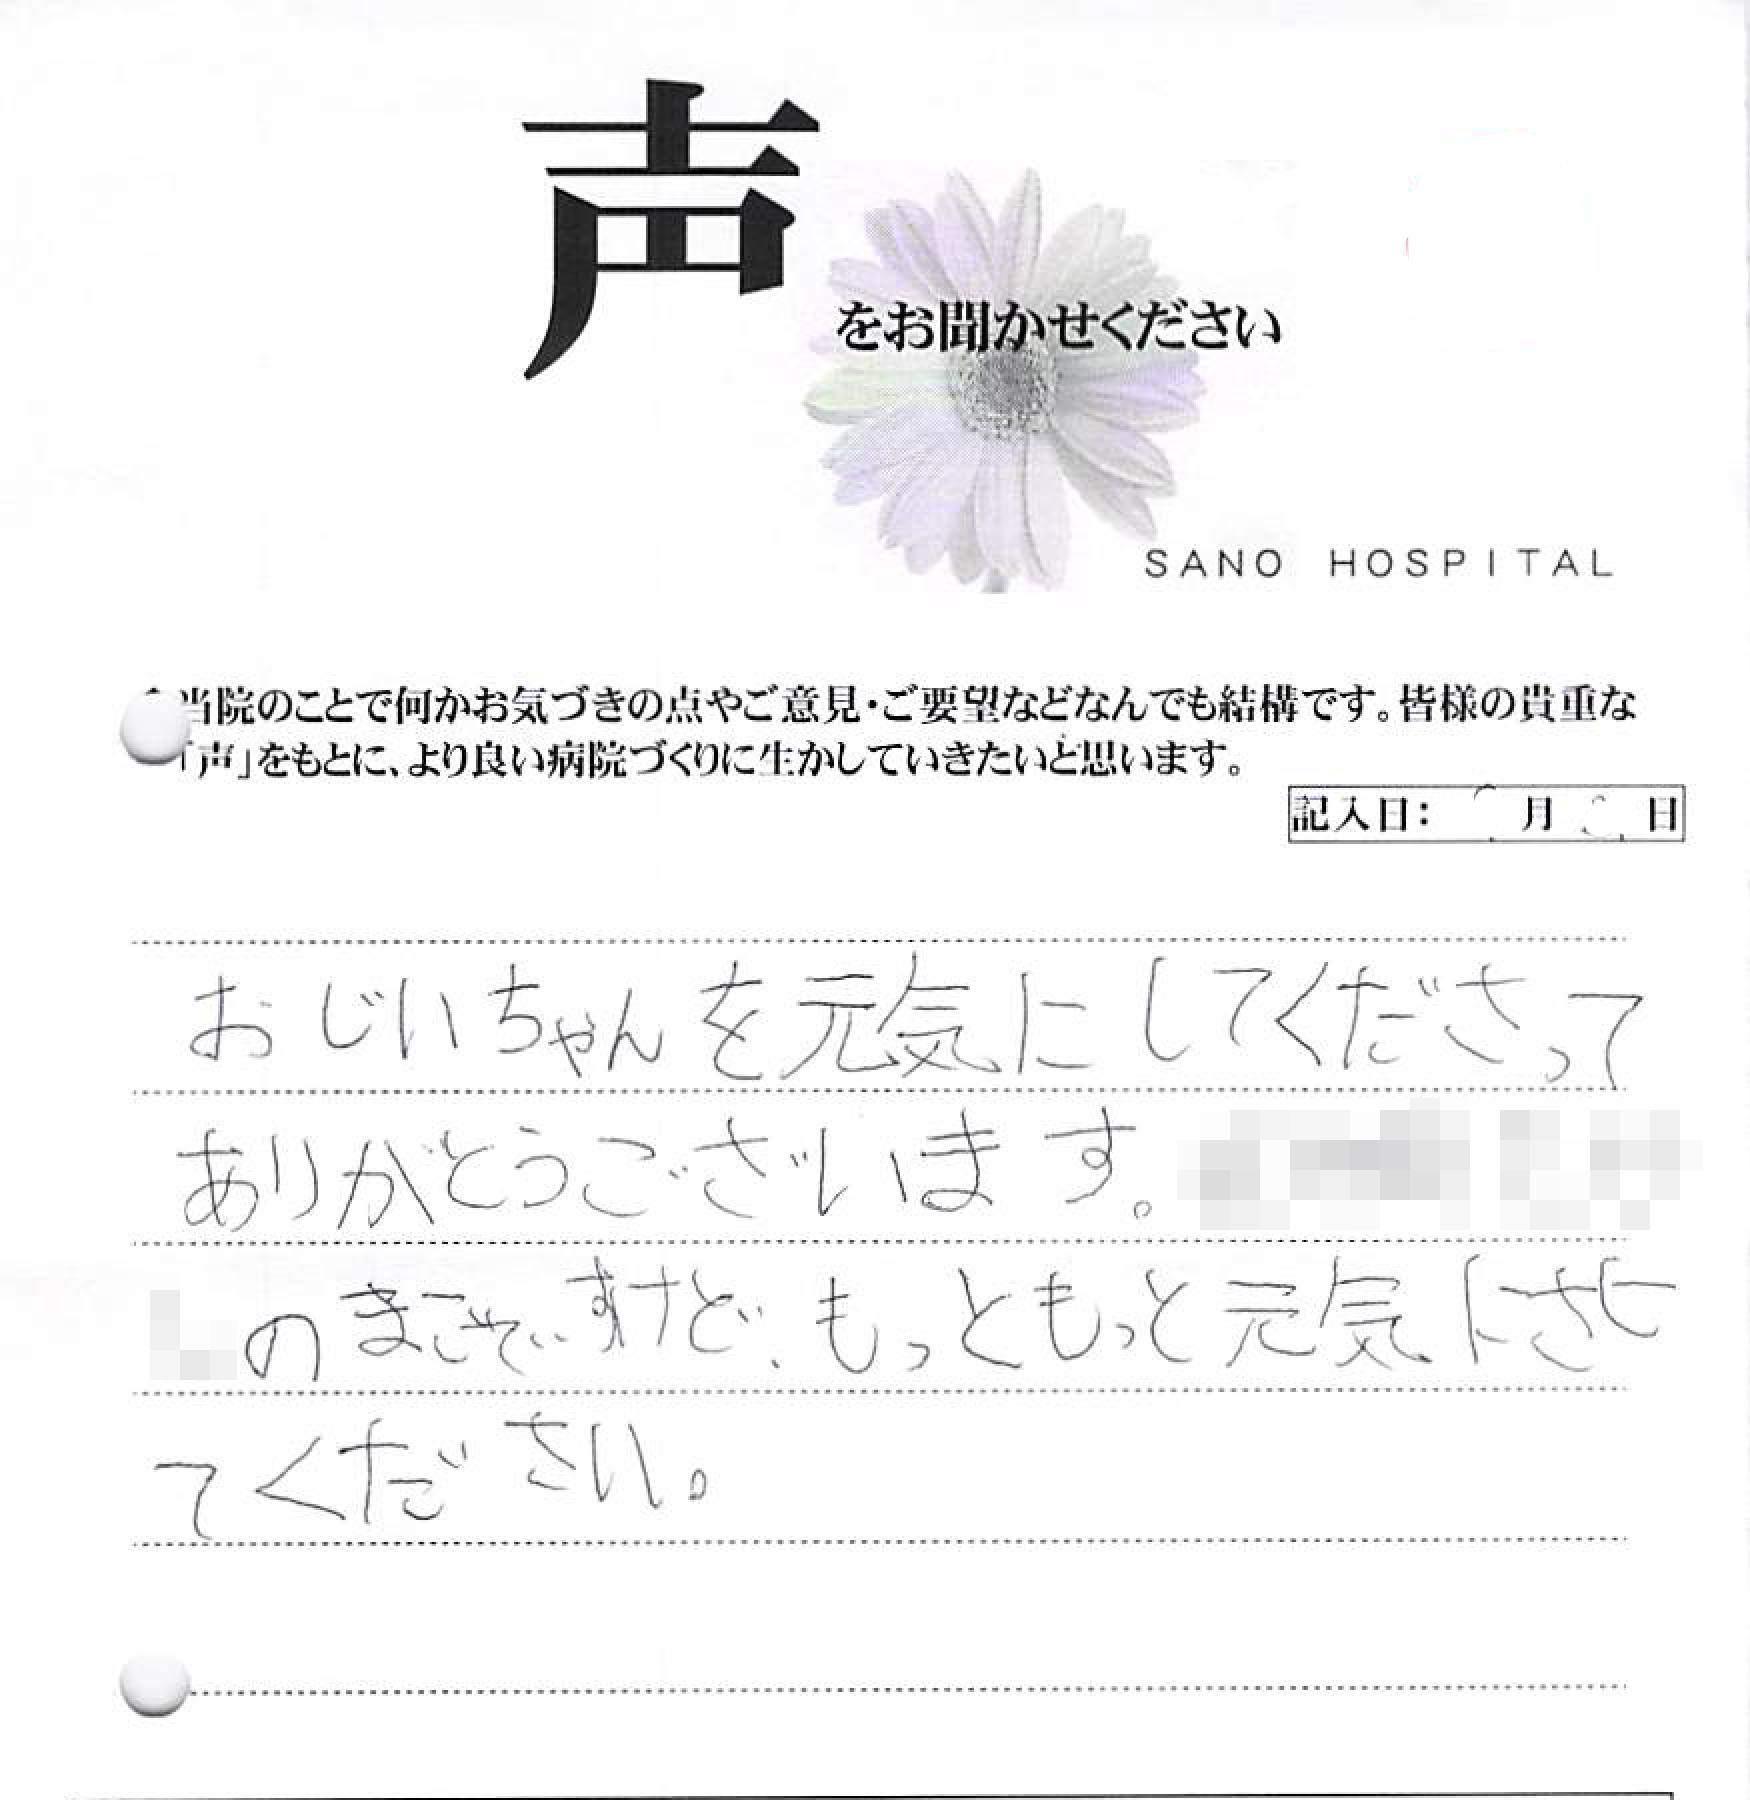 声
をお聞かせください
SANO HOSPITAL
当院のことで何かお気づきの点やご意見・ご要望などなんでも結構です。皆様の貴重な
「声」をもとに、より良い病院づくりに生かしていきたいと思います。
記入日： 月 日
おじいちゃんを元気にしてくださって
ありがとうございます。
のまごですけど、もっともっと元気にさせ
てください。